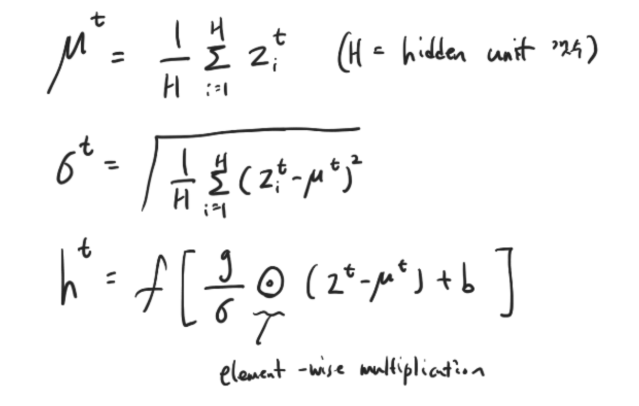 μ^t = 1/H Σ_{i=1}^{H} z_i^t (H = hidden unit 개수)
σ^t = √(1/H Σ_{i=1}^{H} (z_i^t - μ^t)²)
h^t = f[g/σ ⊙ (z^t - μ^t) + b]
element-wise multiplication